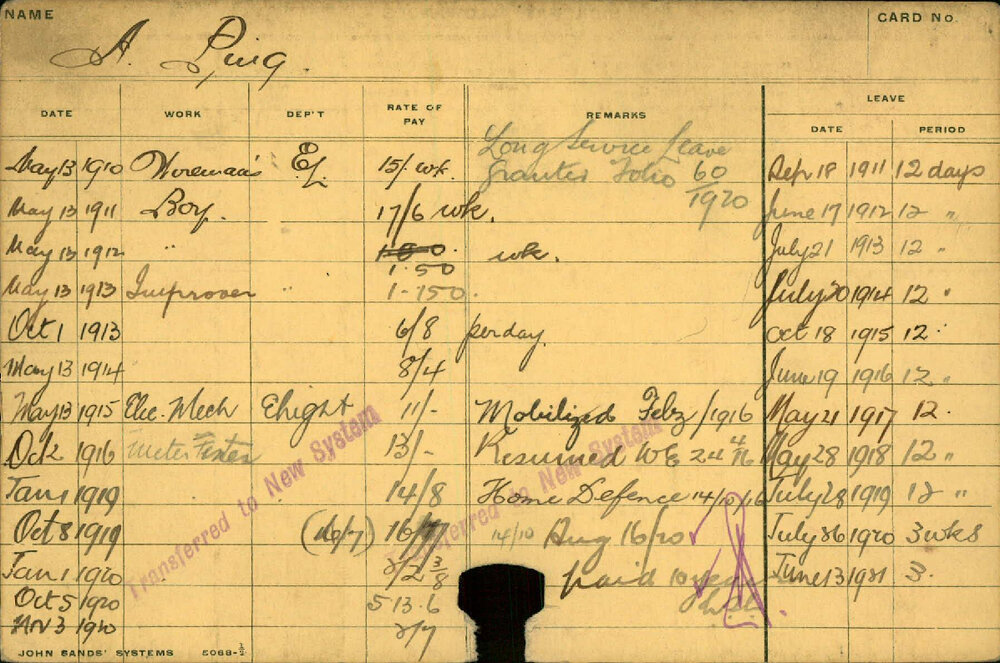 NAME
CARD No.
A. Ping.
DATE WORK DEP'T RATE OF PAY REMARKS LEAVE
DATE PERIOD
Long Service Leave
May 13 1910 El. 15/- wk. Granted Folio 60/1920 Sep 18 1911 12 days
May 13 1911 Boy. 17/6 wk. June 17 1912 12 "
May 13 1912 " 1·50 wk. July 21 1913 12 "
May 13 1913 Improver " 1-150. July 20 1914 12 "
Oct 1 1913 6/8 per day. Oct 18 1915 12 "
May 13 1914 8/4 June 19 1916 12 "
May 13 1915 Elec. Mech 11/- Mobilized Feb 2/1916 May 21 1917 12.
Oct 2 1916 Meter Tester 13/- Resumed WE 24 4/16 May 28 1918 12 "
Jan 1 1919 14/8 Home Defence 14/10/16 July 28 1919 12 "
Oct 8 1919 (16/7) 14/10 Aug 16/20 July 26 1920 3 wks
Jan 1 1920 paid 10 years June 13 1921 3.
Oct 5 1920 5 13.6
Nov 3 1920
Transferred to New System
Transferred to New System
JOHN SANDS' SYSTEMS 5068